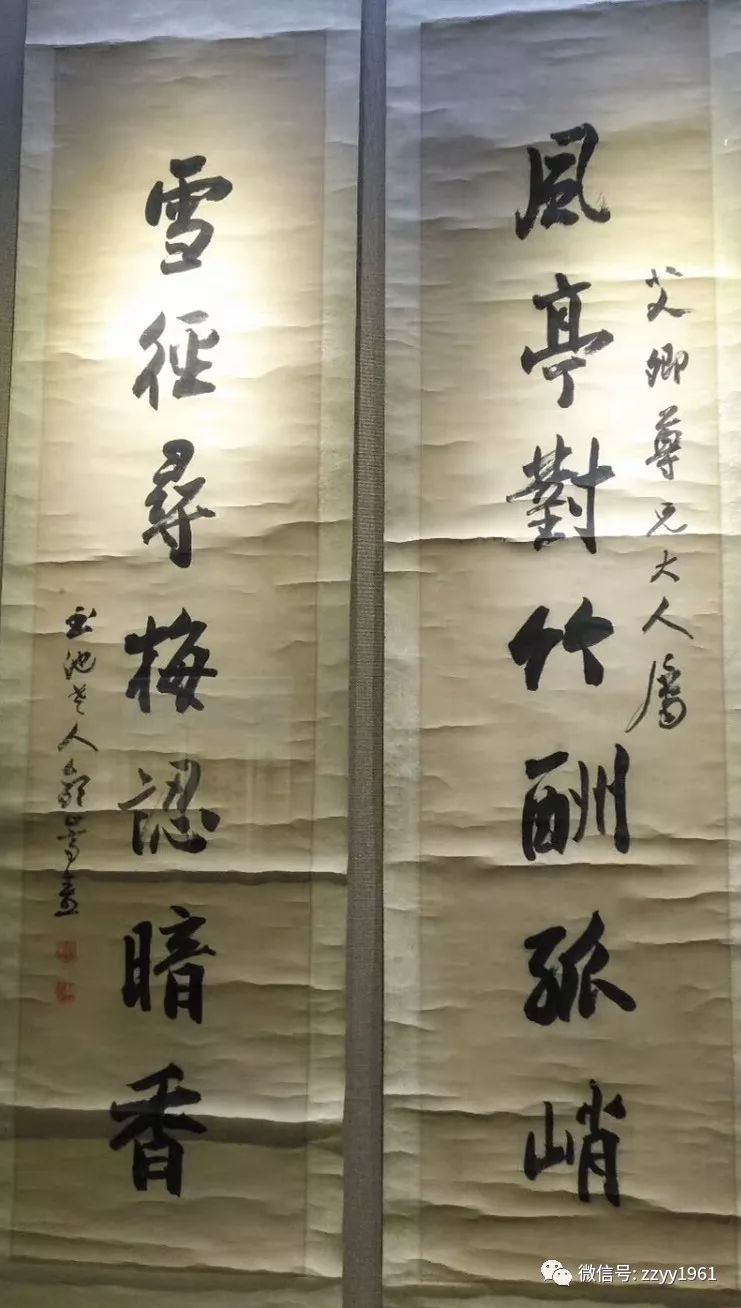 艾卿尊兄大人屬
風亭對竹酬孤峭
雪徑尋梅認暗香
玉池老人郭嵩燾
微信号: zzyy1961